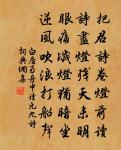 把君詩卷燈前讀
詩盡燈殘天未明
眼痛滅燈猶暗坐
逆風吹浪打船聲
白居易舟中讀元九詩
詞典網集